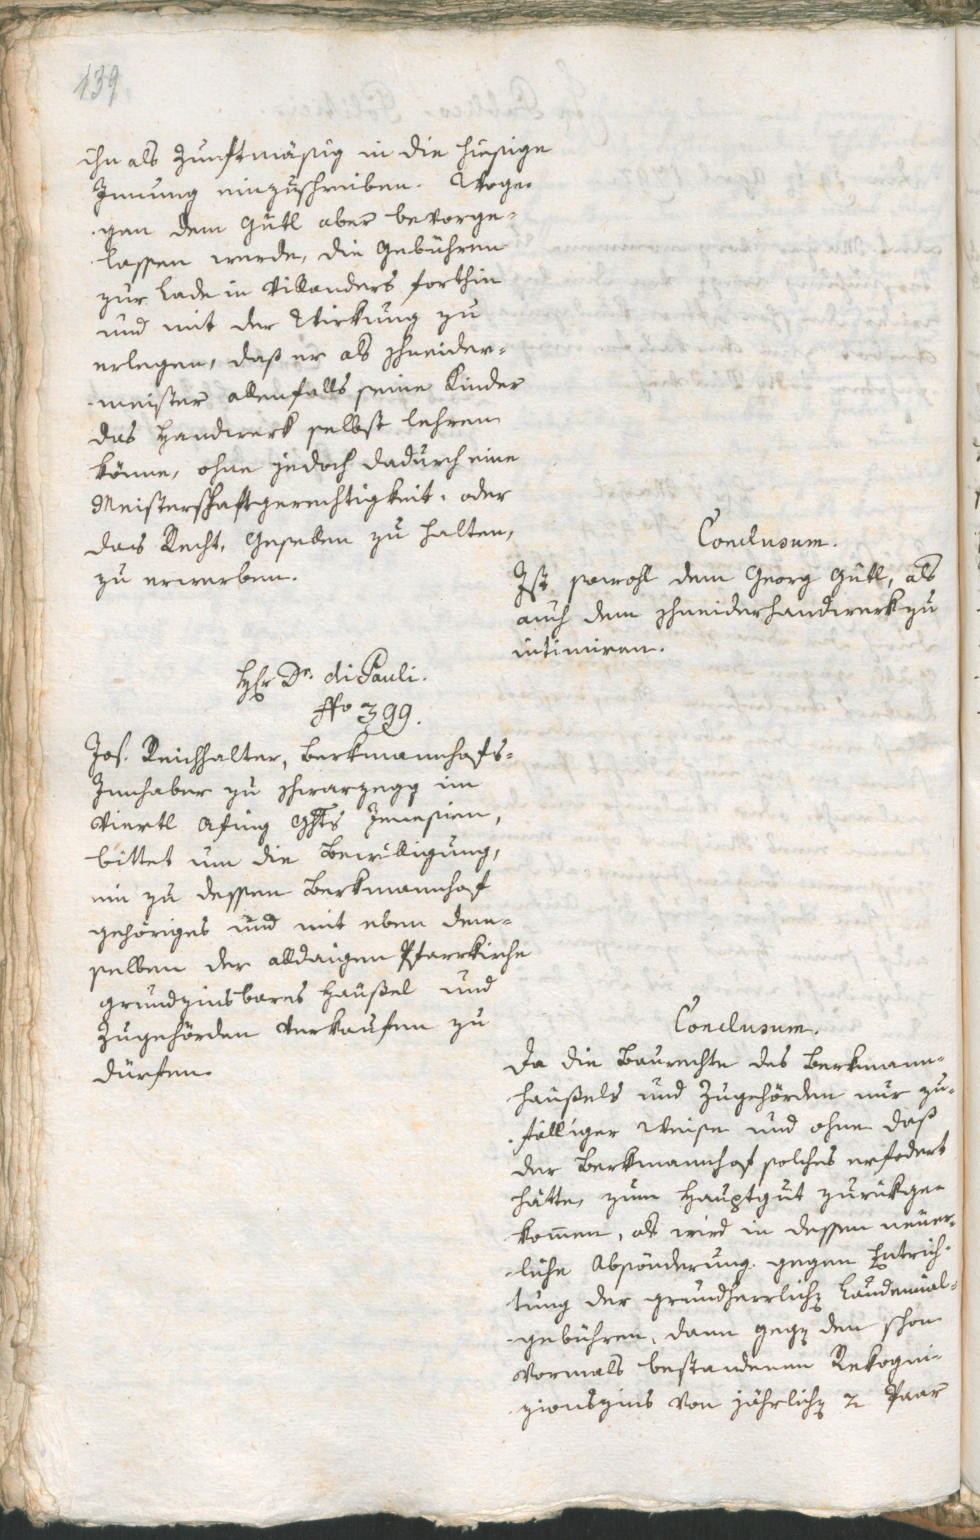 139
ihn als Zunftmäßig in die hiesige
Innung einzuschreiben. Woge-
gen dem Gütl aber bevorge-
lassen werde, die Gebühren
zur Lade in Villanders forthin
und mit der Wirkung zu
erlegen, daß er als Schneider-
meister allenfalls seine Kinder
das Handwerk selbst lehren
könne, ohne jedoch dadurch eine
Meisterschaftsgerechtigkeit, oder
das Recht, Gesellen zu halten,
zu erwerben.
Conclusum.
Ist sowohl dem Georg Gütl, als
auch dem Schneiderhandwerk zu
intimiren.
Hr Dr. di Pauli.
No 399.
Jos. Reichhalter, Berkmannhofs-
Innhaber zu Schwarzegg im
Viertl Afing Ghts Jenesien,
bittet um die Bewilligung,
ein zu dessen Berkmannhof
gehöriges und mit eben dem-
selben der alldaigen Pfarrkirche
grundzinsbares Häußel und
Zugehörden verkaufen zu
dürfen.
Conclusum.
Da die Baurechte des Berkmann-
häußels und Zugehörden nur zu-
fälliger Weise und ohne daß
der Berkmannhof solches erfodert
hätte, zum Hauptgut zurükge-
kommen, als wird in dessen neuer-
liche Absönderung gegen Entrich-
tung der grundherrlichen Laudemial-
gebühren, dann gegen den schon
vormals bestandenen Rekogni-
zionszins von jährlichen 2 Paar